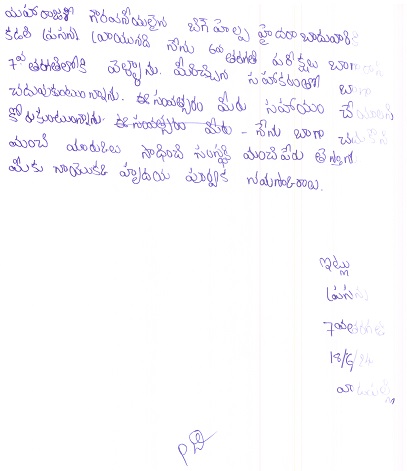 మహారాజశ్రీ గౌరవనీయులైన బిగ్ హెల్ప్ హైదరాబాదువారికి
కడలి ప్రసన్న వ్రాయునది నేను 6వ తరగతి పరీక్షలు బాగా
7వ తరగతిలోకి వెళ్ళాను. మీరిచ్చిన సహకారంతో బాగా
చదువుకుంటున్నాను. ఈ సంవత్సరం మీరు సహాయం చేయాలని
కోరుకుంటున్నాను. ఈ సంవత్సరం మీరు - నేను బాగా చదివి
మంచి మార్కులు సాధించి సంస్థకి మంచిపేరు తెస్తాను
మీకు నాయొక్క హృదయ పూర్వక నమస్కారాలు.
ఇట్లు
ప్రసన్న
7వ తరగతి
18/6/